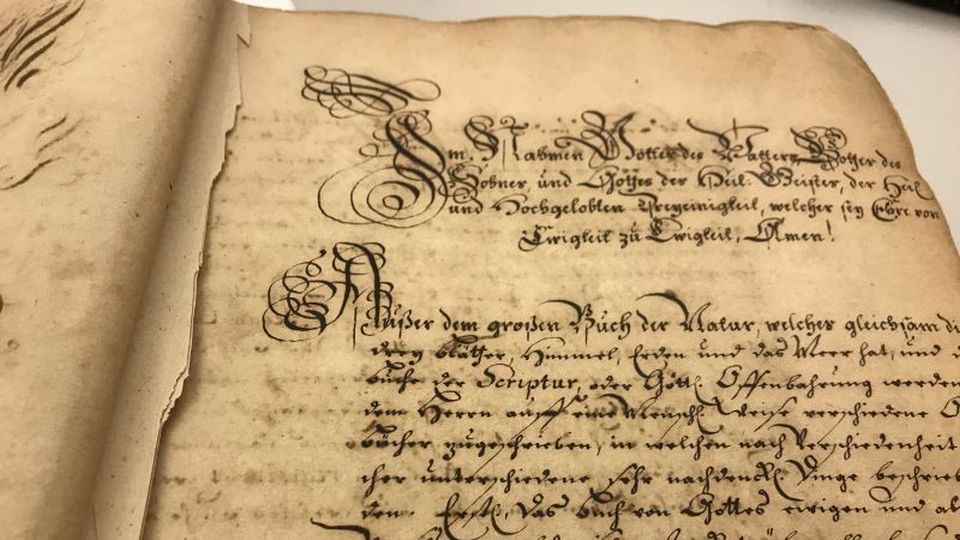 Im Nahmen Gottes des Vatters, Gottes des
Sohnes, und Gottes des Heil: Geistes, der Heil
und Hochgelobten Dreyeinigkeit, welcher sey Ehre von
Ewigkeit zu Ewigkeit, Amen!
Außer dem großen Buch der Natur, welches gleichsam di
drey blätter, Himmel, Erden und das Meer hat, und d
buche der Scriptur, oder Göttl. Offenbahrung werden
dem Herren auff eine Menschl. Weise verschiedene
bücher zugeschrieben, in welchen nach Verschiedenheit
cher unterschiedene sehr nachdenckl. Dinge beschrieb
den. Erstl. das buch von Gottes ewigen und al